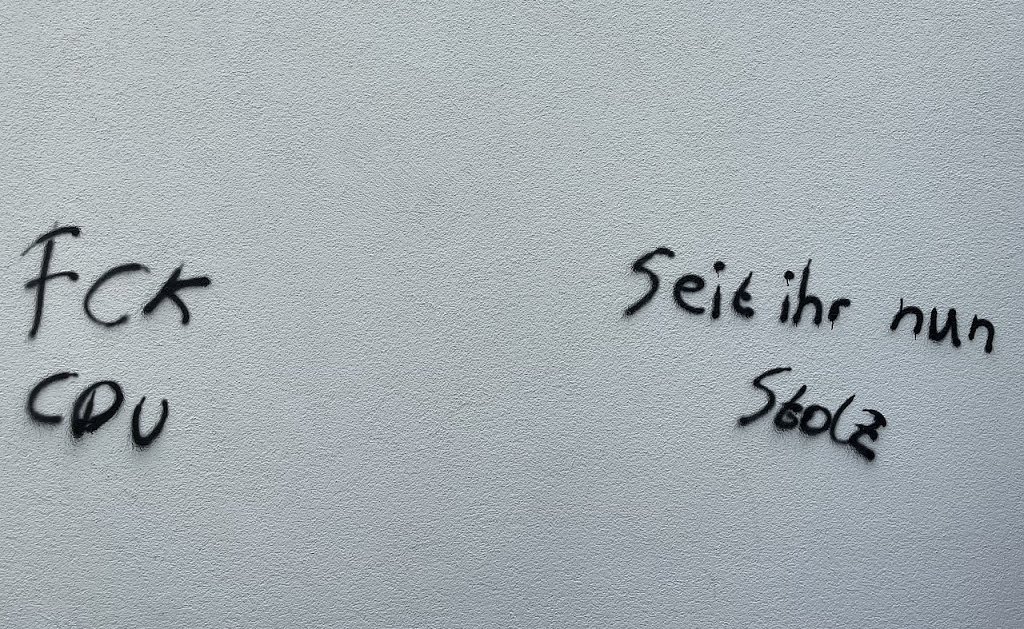 FCK
CDU
Seit ihr nun
Stolz